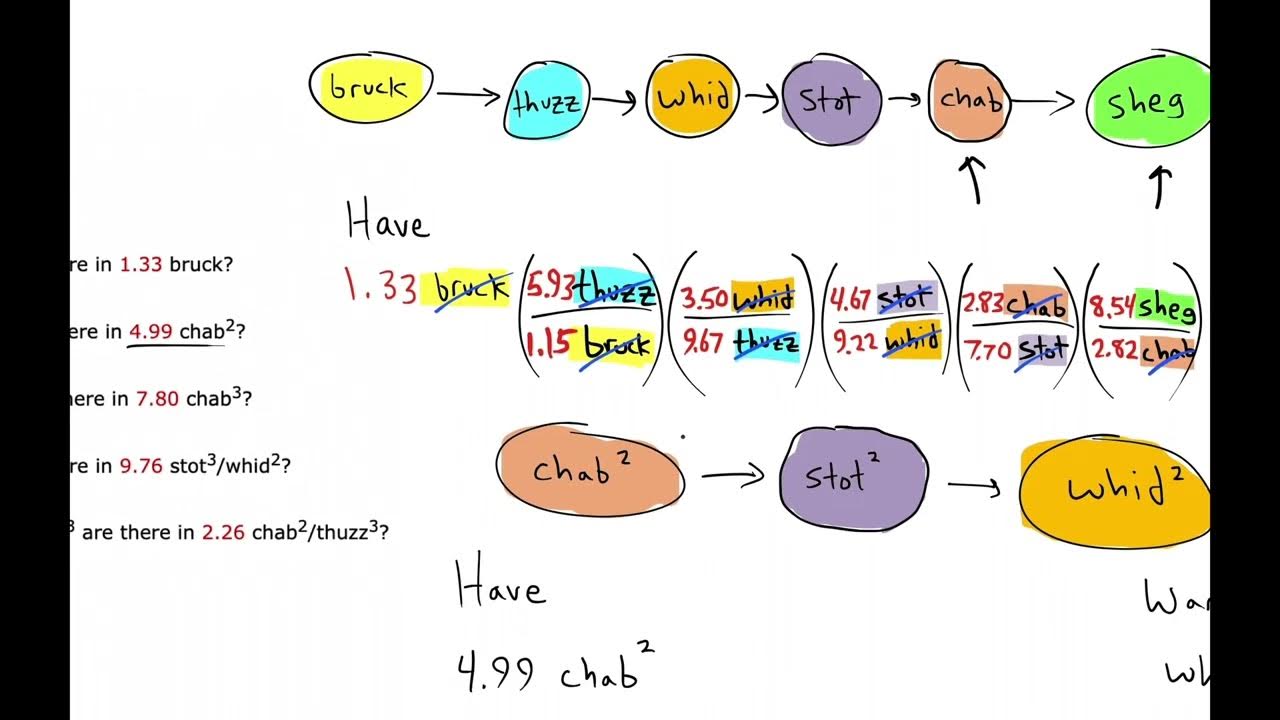 bruck → thuzz → whid → stot → chab → sheg
Have
re in 1.33 bruck?
1.33 bruck (5.93 thuzz / 1.15 bruck) (3.50 whid / 9.67 thuzz) (4.67 stot / 9.22 whid) (2.83 chab / 7.70 stot) (8.54 sheg / 2.82 chab)
ere in 4.99 chab²?
here in 7.80 chab³?
re in 9.76 stot³/whid²?
³ are there in 2.26 chab²/thuzz³?
chab² → stot² → whid²
Have
Wa
4.99 chab²
wh